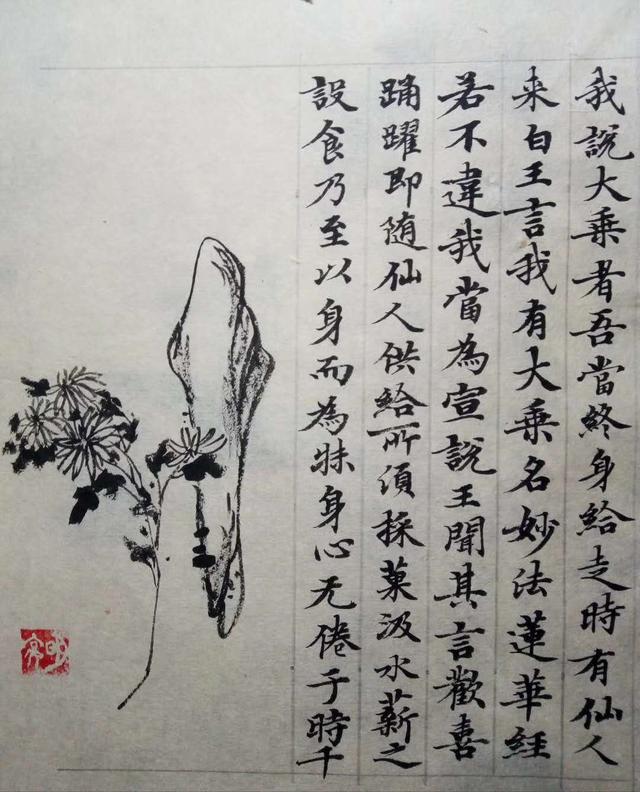 我說大乘者吾當終身給走時有仙人
来白王言我有大乘名妙法蓮華経
若不違我當為宣說王聞其言歡喜
踊躍即随仙人供給所須採菓汲水薪之
設食乃至以身而為牀身心无倦于時千